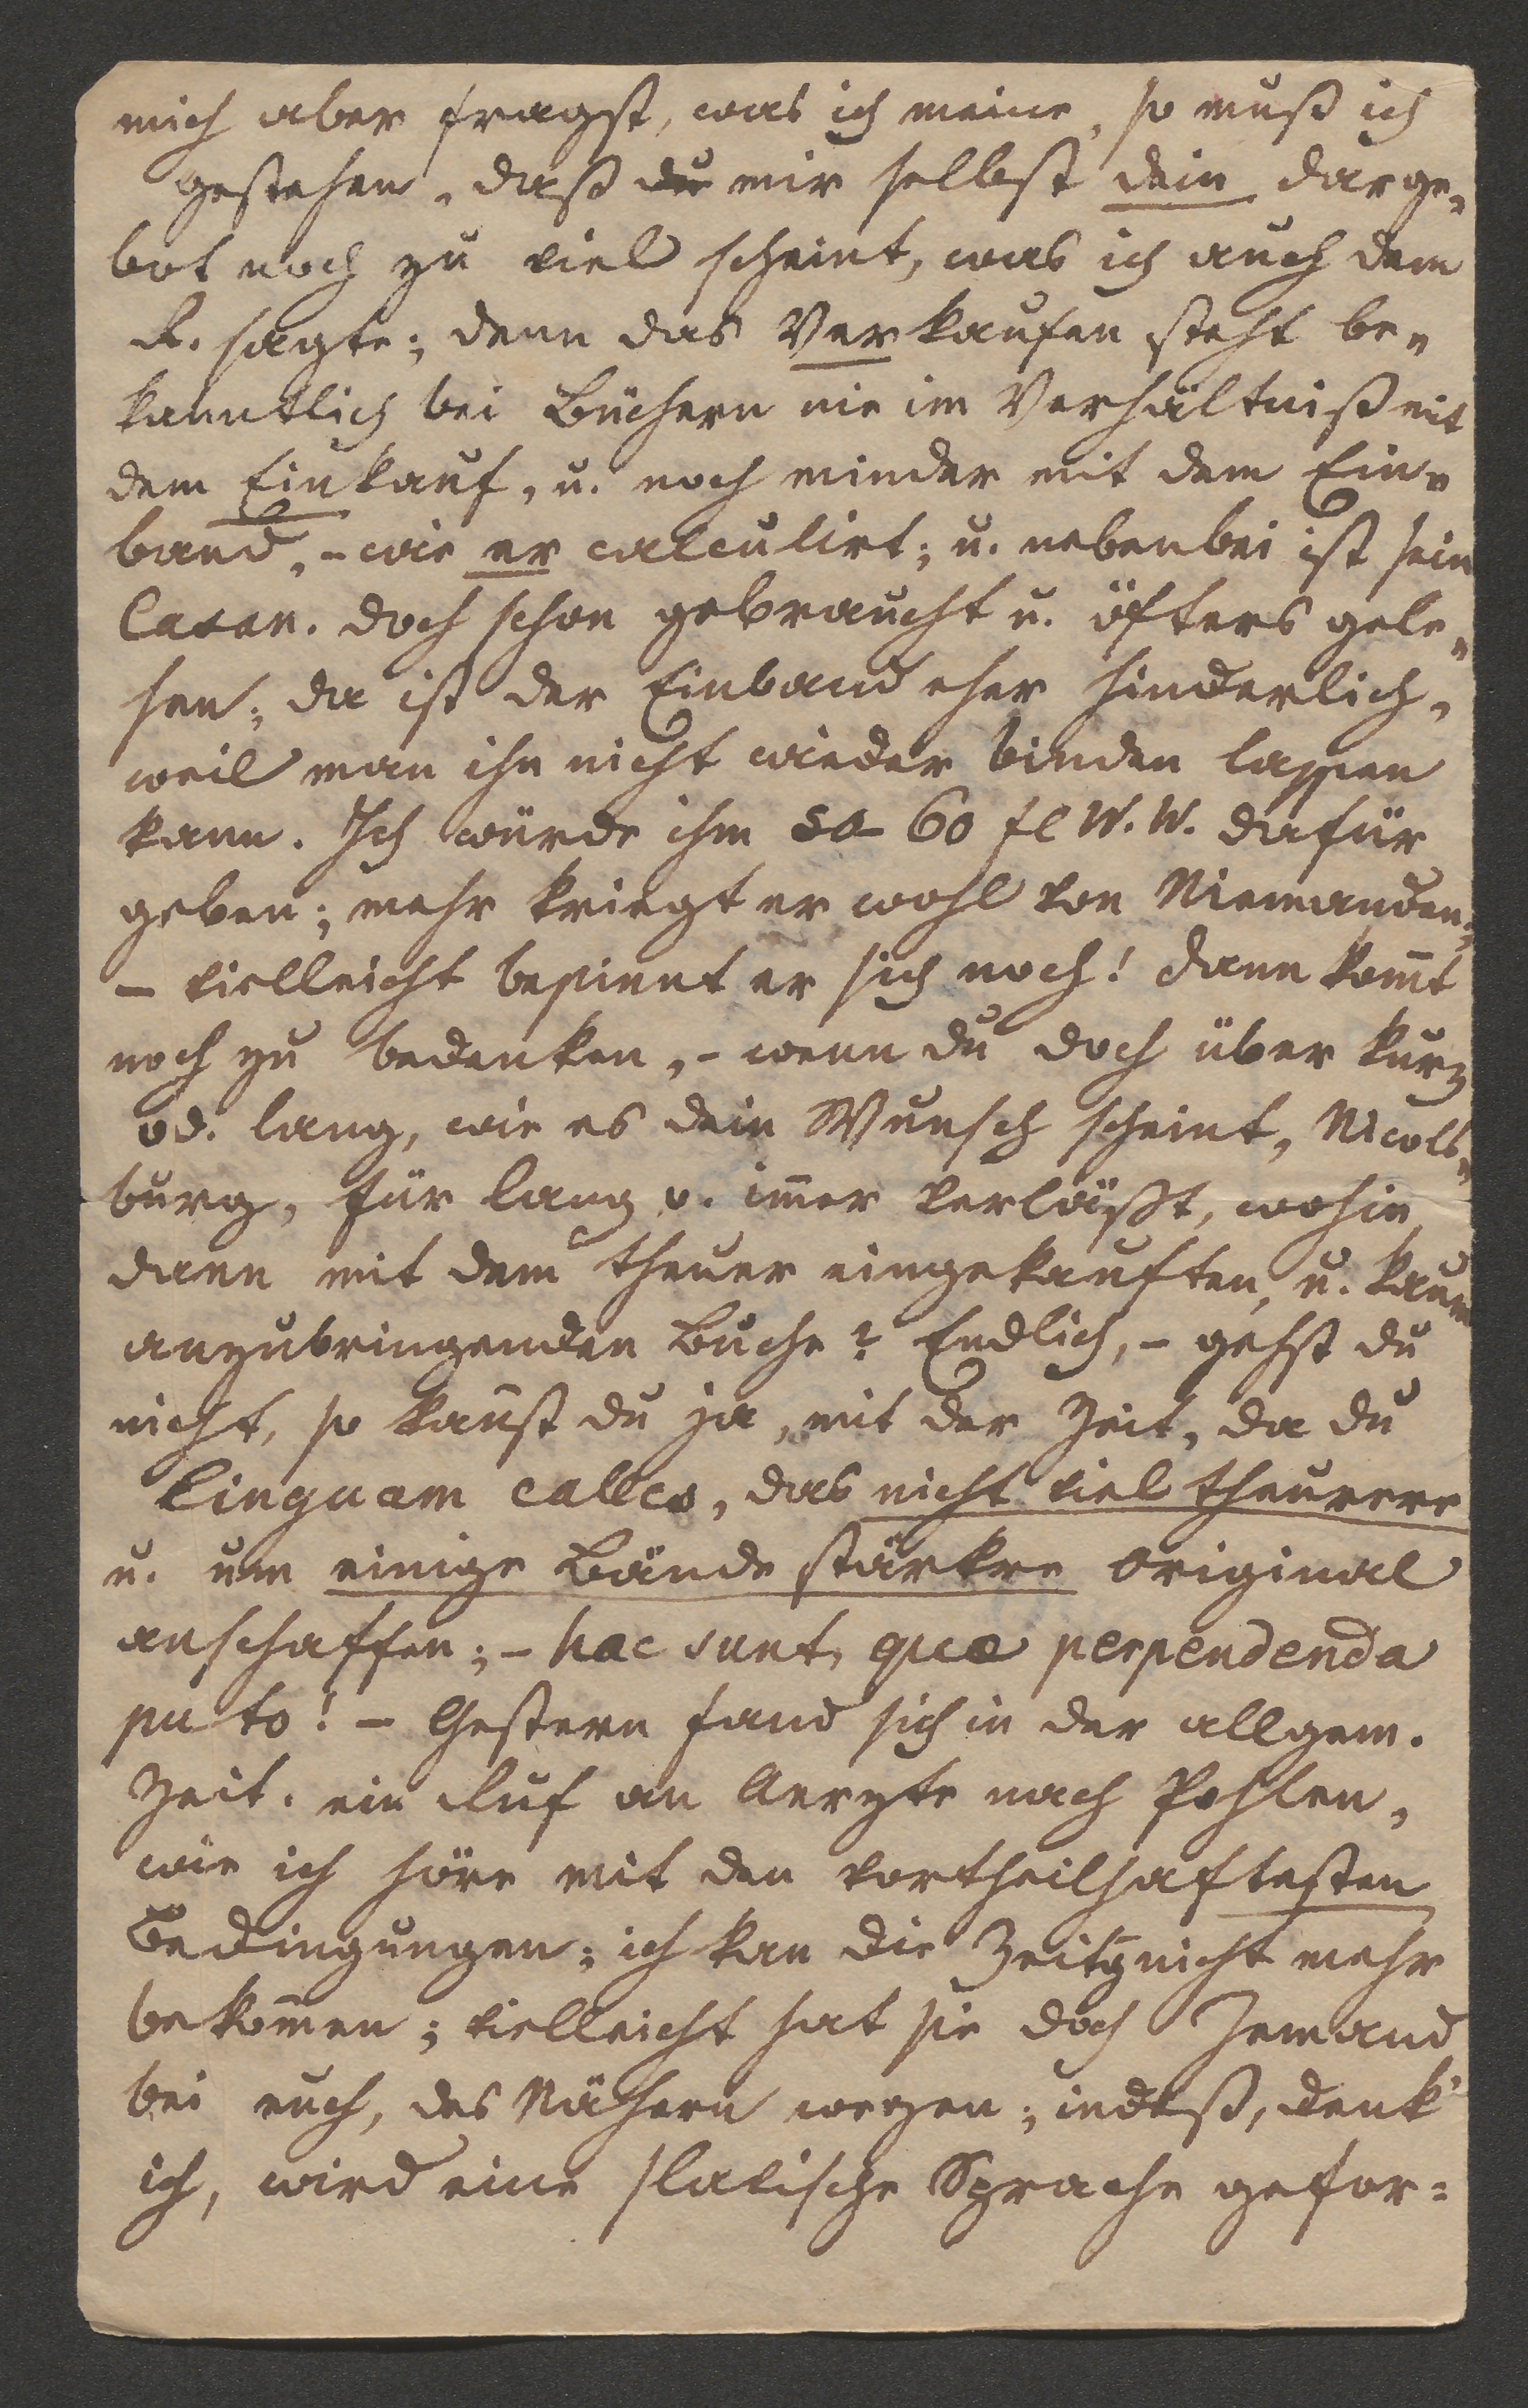 mich aber fragst, was ich meine, so muß ich
gestehen, daß du mir selbst dein Darge„
bot noch zu viel scheint, was ich auch dem
R. sagte; denn das Verkaufen steht be„
kanntlich bei Büchern nie im Verhältniß mit
dem Einkauf, u. noch minder mit dem Ein„
band, – wie er calculirt; u. nebenbei ist sein
Casan. doch schon gebraucht u. öfters gele„
sen; da ist der Einband eher hinderlich,
weil man ihn nicht wieder binden lassen
kann. Ich würde ihm 50– 60 fl W. W. dafür
geben; mehr kriegt er wohl von Niemanden;
– vielleicht besinnt er sich noch! dann kom̅t
noch zu bedenken, – wenn du doch über kurz
od. lang, wie es dein Wunsch scheint, Nicols„
burg, für lang o. im̅er verläßt, wohin
dann mit dem theuer eingekauften, u. kaum
anzubringenden Buche? Endlich, – gehst du
nicht, so kan̅st du ja, mit der Zeit, da du
linguam calles, das nicht viel theurere
u. um einige Bände stärkre Original
anschaffen; – haec sunt, quæ perpendenda
puto! – Gestern fand sich in der allgem.
Zeit. ein Ruf an Aerzte nach Pohlen,
wie ich höre mit den vortheilhaftesten
Bedingungen; ich kan die Zeitg nicht mehr
bekom̅en; vielleicht hat sie doch Jemand
bei euch, des Nähern wegen; indeß, denk'
ich, wird eine slavische Sprache gefor=